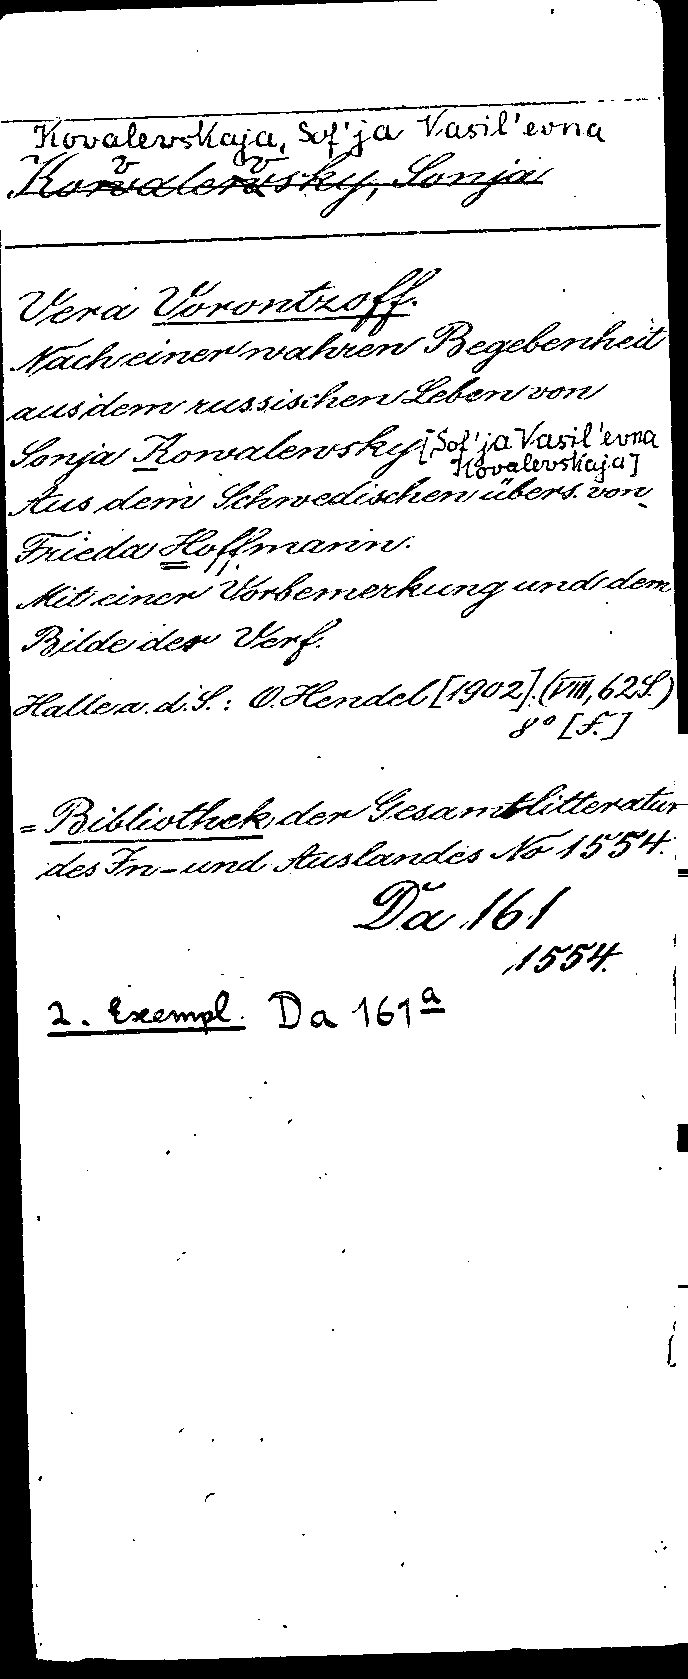 Kovalevskaja, Sof'ja Vasil'evna
Kowalewsky, Sonja
Vera Vorontzoff.
Nach einer wahren Begebenheit
aus dem russischen Leben von
Sonja Kowalewsky [Sof'ja Vasil'evna
Kovalevskaja]
Aus dem Schwedischen übers. von
Frieda Hoffmann.
Mit einer Vorbemerkung und dem
Bilde der Verf.
Halle a. d. S.: O. Hendel [1902]. (VIII, 62 S)
8° [f.]
= Bibliothek der Gesamtlitteratur
des In- und Auslandes No 1554.
Da 161
1554.
2. Exempl. Da 161a